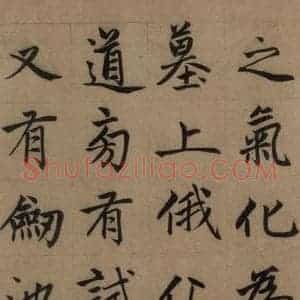 之氣化為
墓上俄
道旁有試
又有劒池
Shufaziliao.com